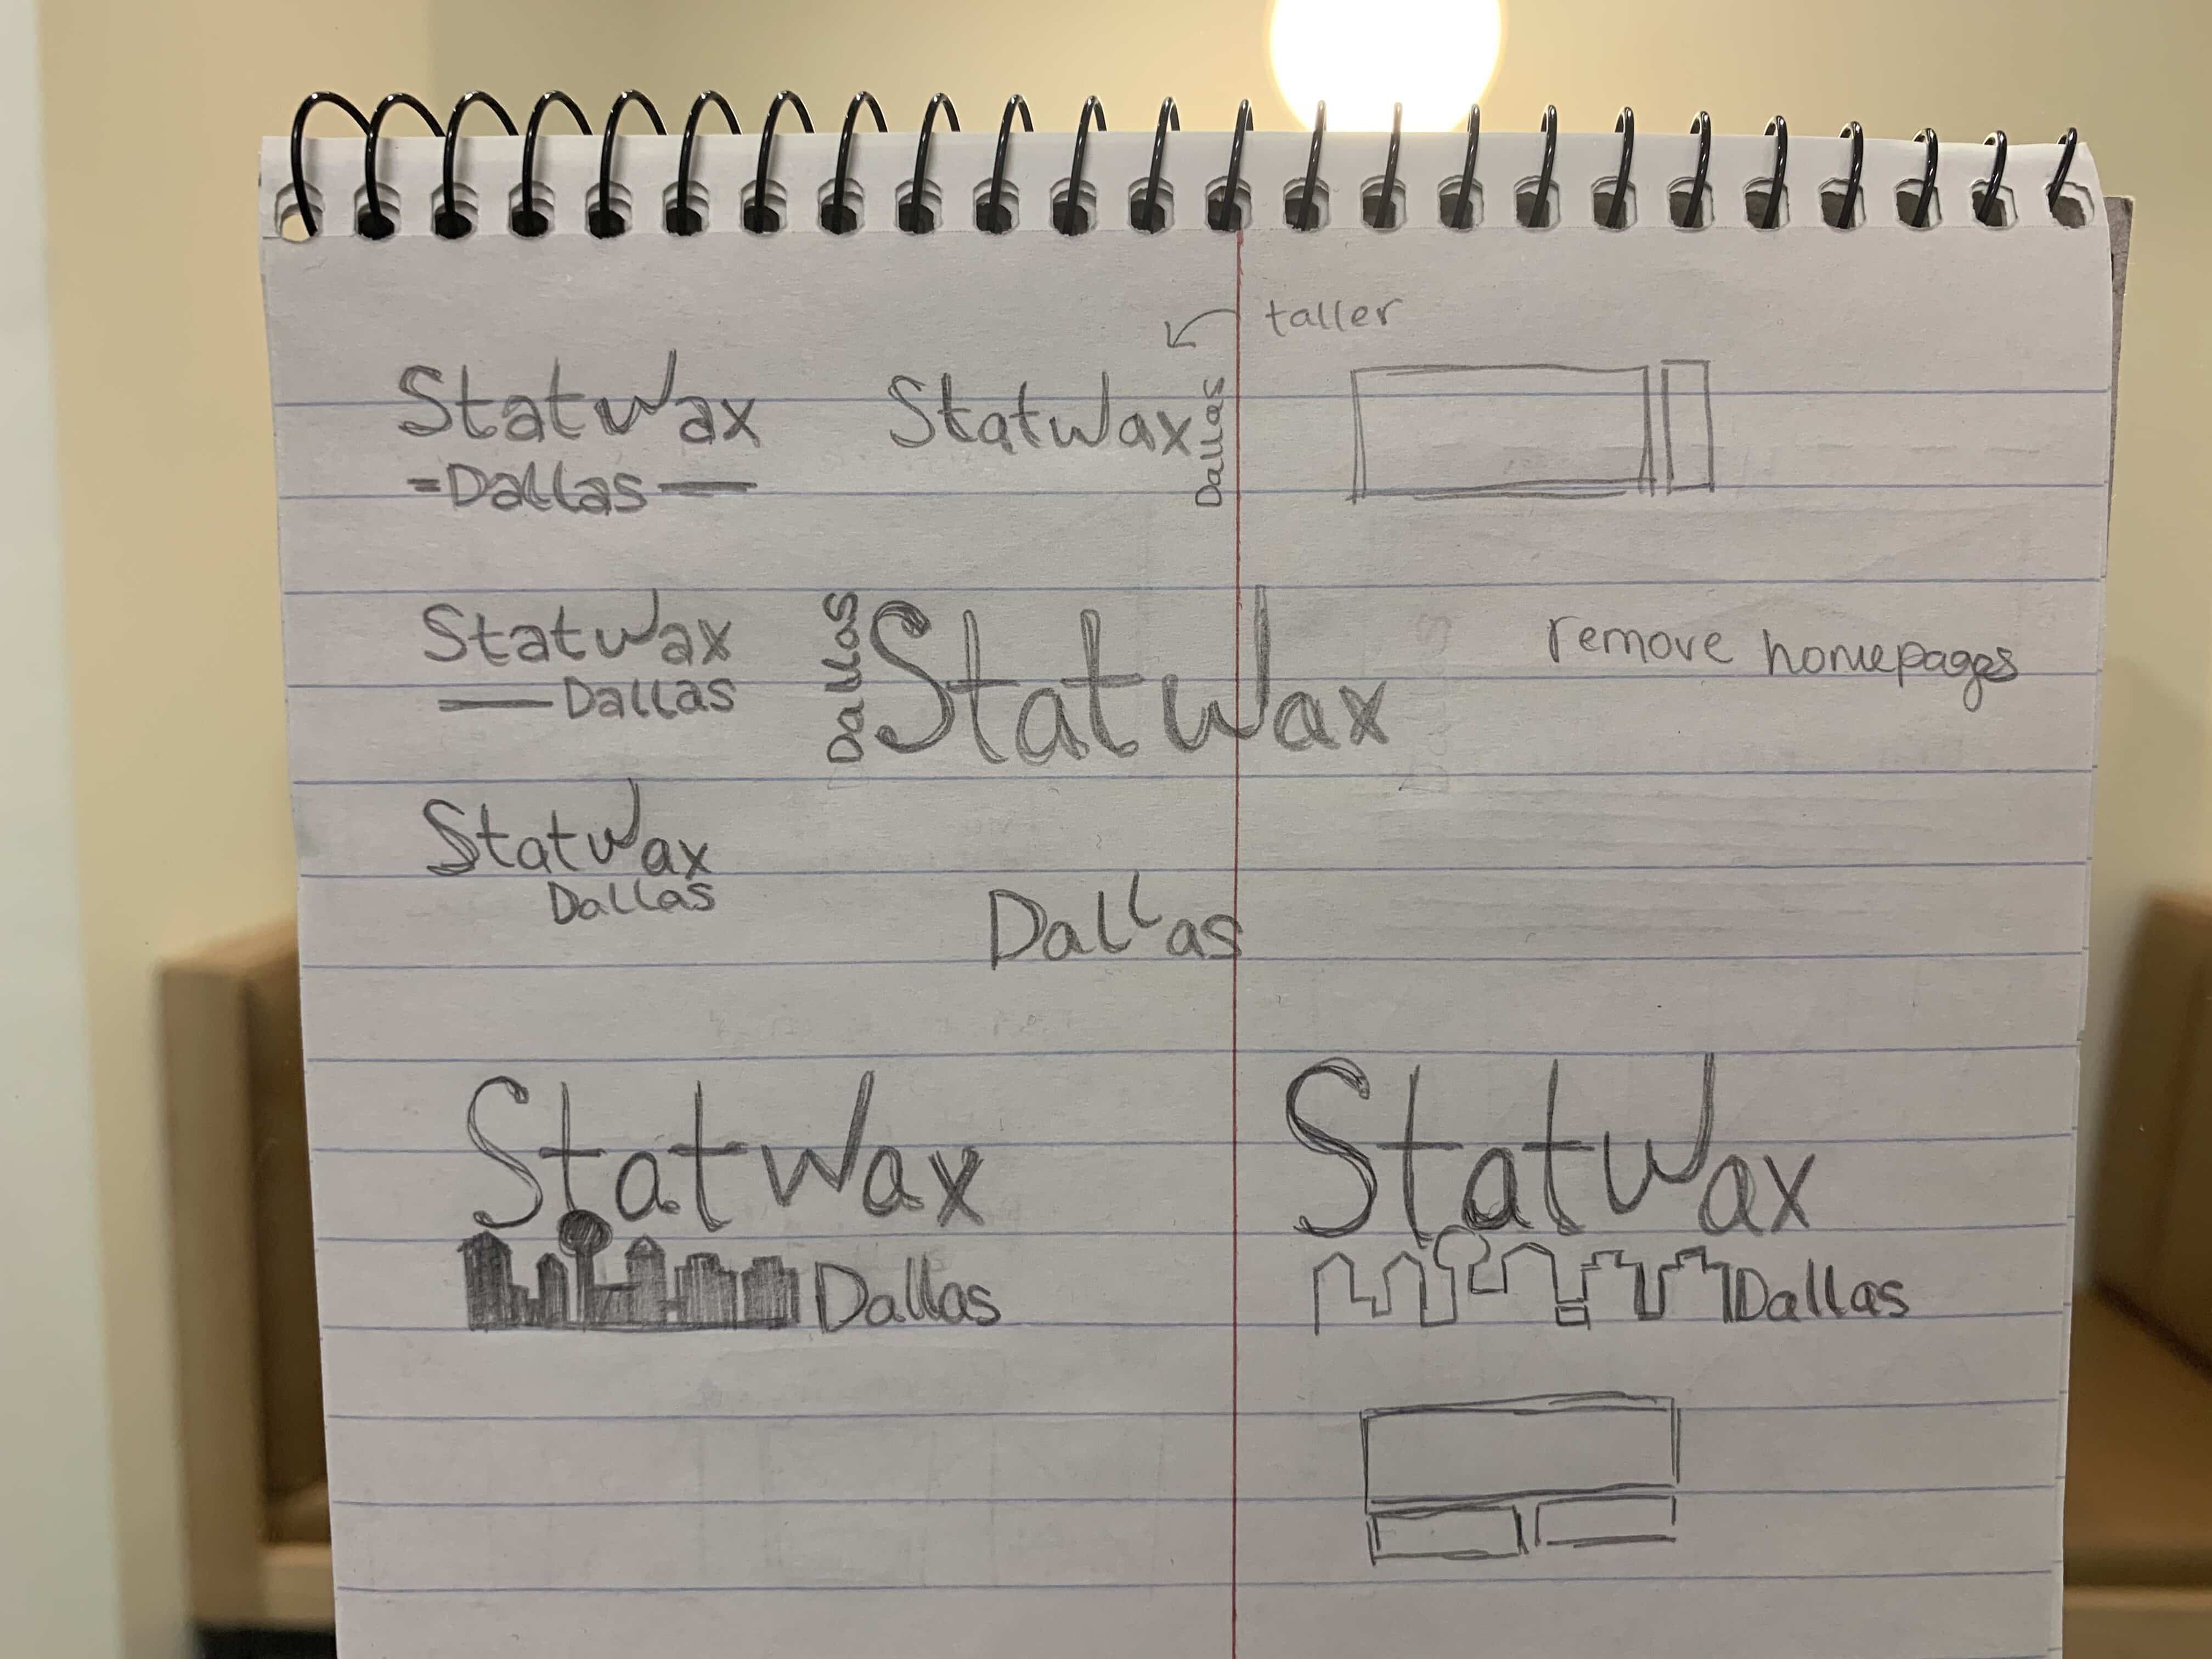 taller
StatWax
-Dallas—
StatWax
Dallas
StatWax
—Dallas
Dallas
StatWax
remove homepages
StatWax
Dallas
Dallas
StatWax
Dallas
StatWax
Dallas